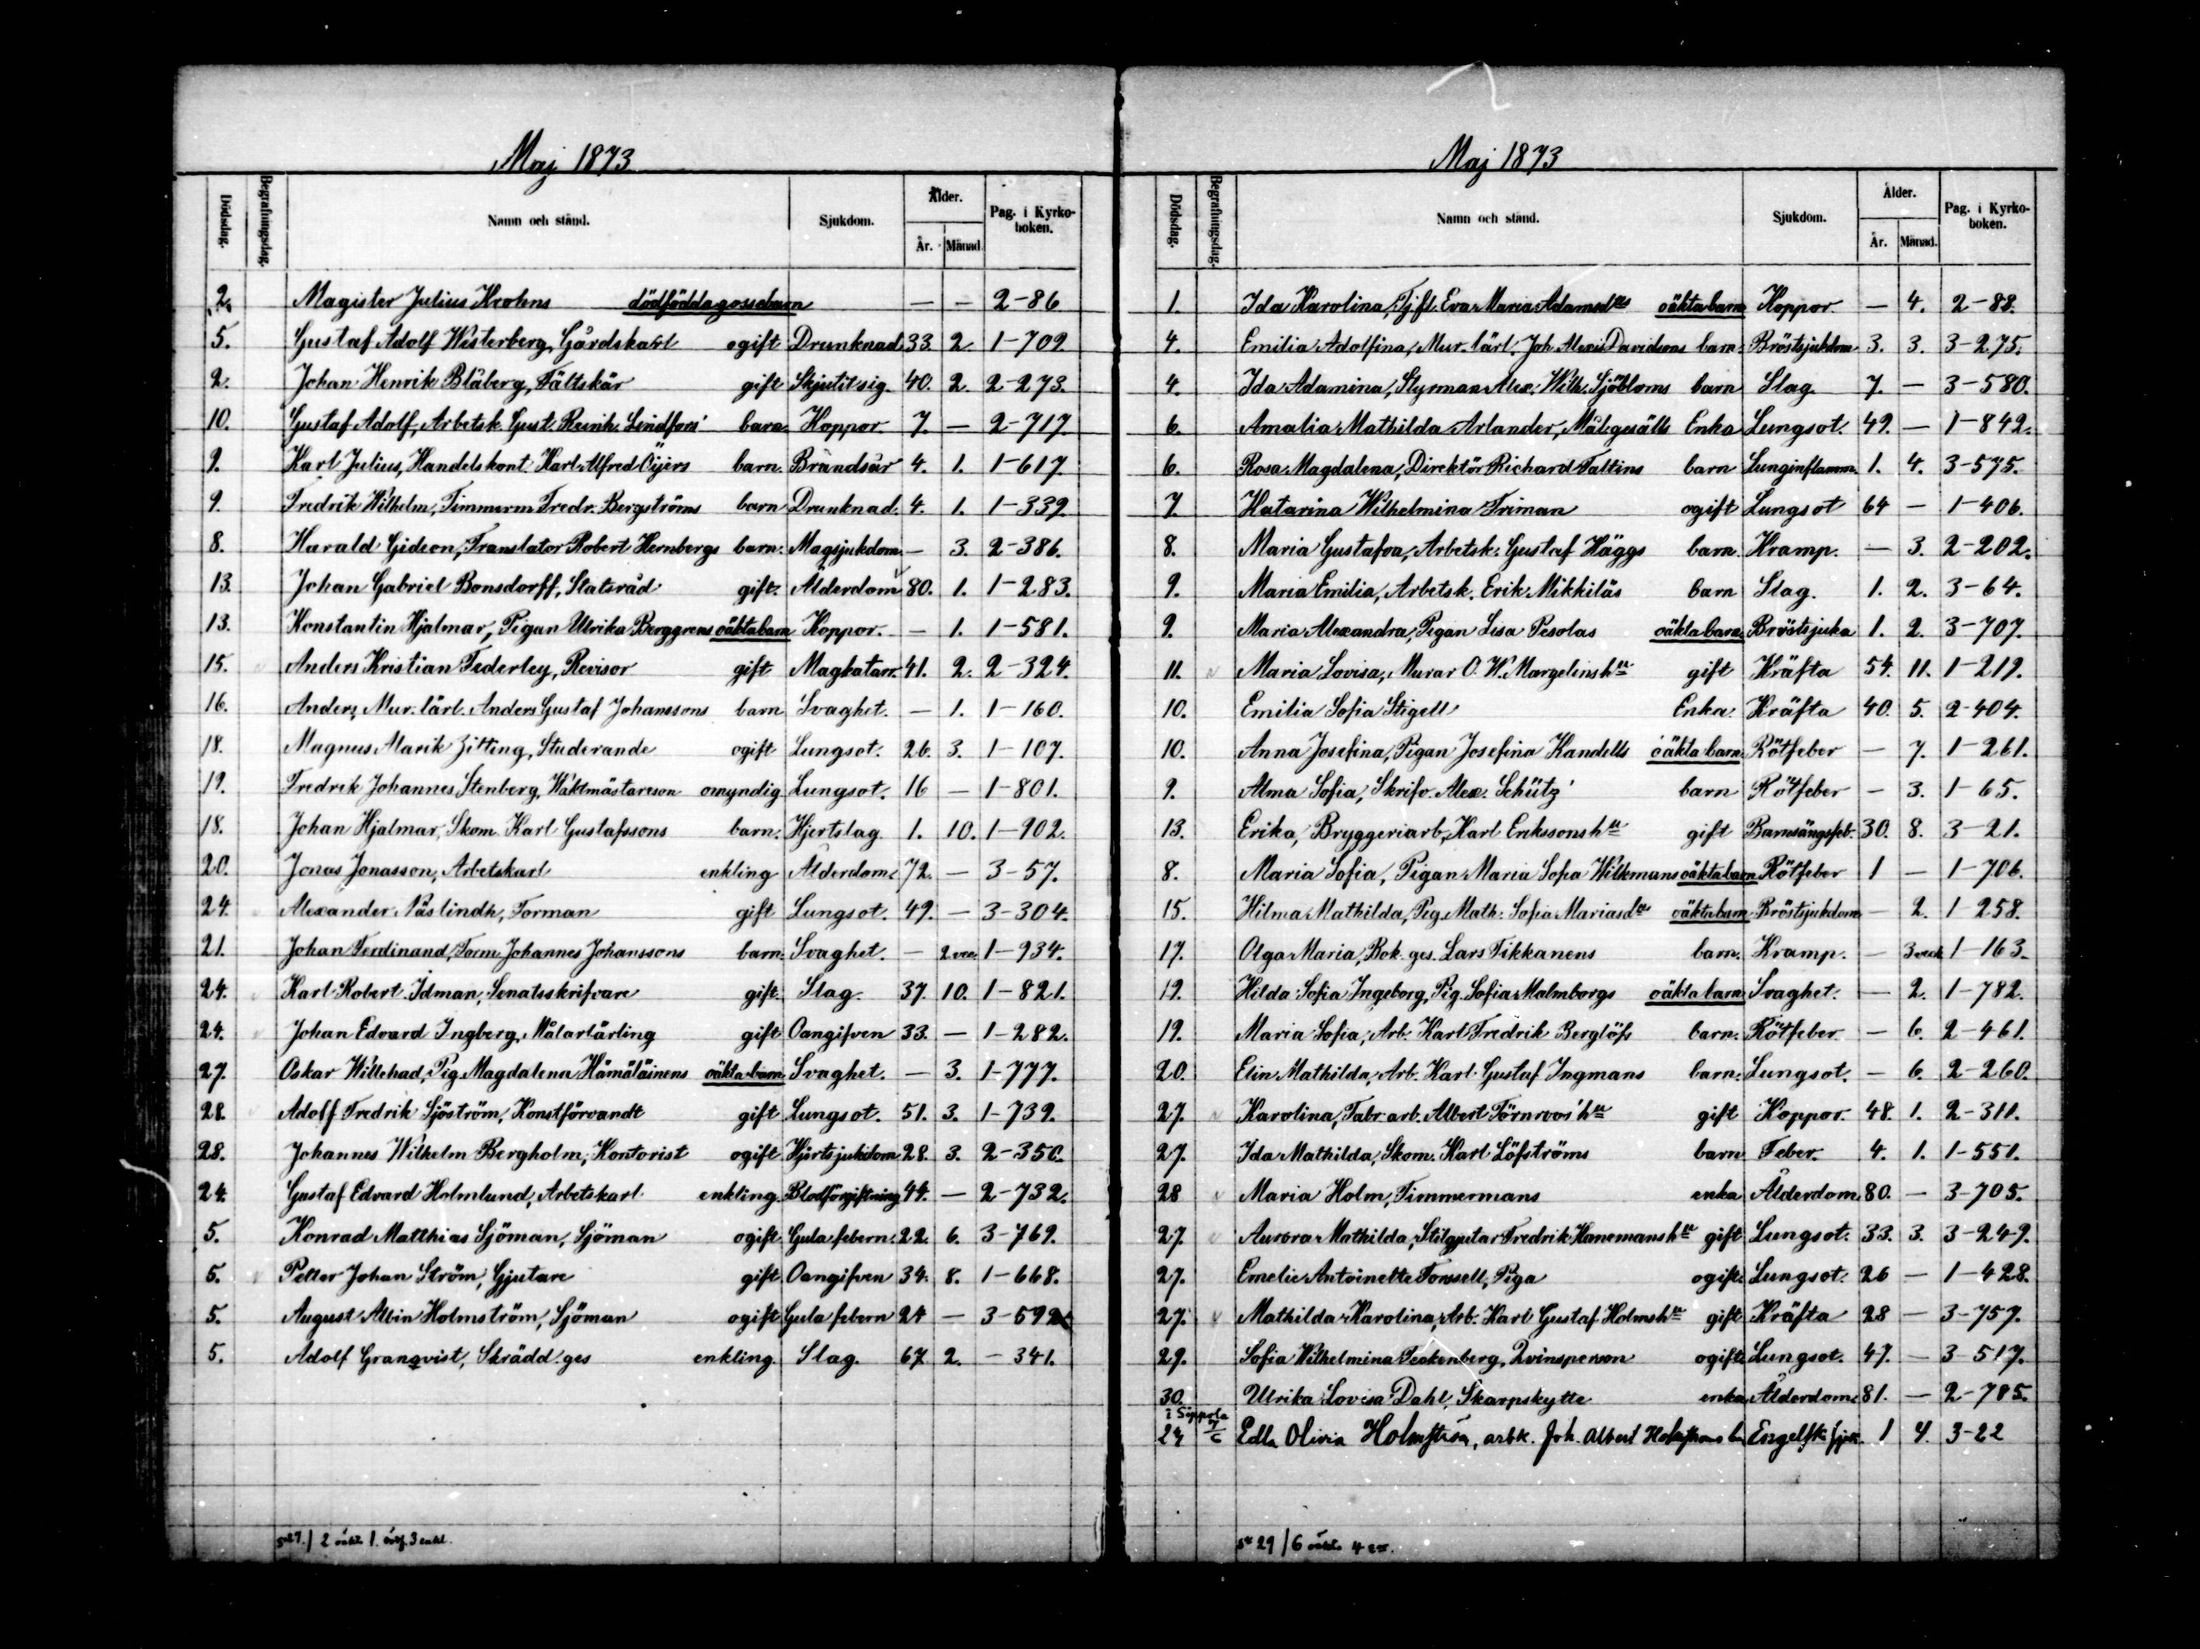 Maj 1873
Dödsdag. Begrafningsdag. Namn och stånd. Sjukdom. Ålder. År. Månad. Pag. i Kyrkoboken.
2. Magister Julius Krohns dödfödda gossebarn — — 2-86
5. Gustaf Adolf Westerberg, Gårdskarl ogift Drunknad 33. 2. 1-709
2. Johan Henrik Blåberg, Fältskär gift Skjutit sig. 40. 2. 2-273.
10. Gustaf Adolf, Arbetsk. Gust. Reinh. Lindfors' barn Koppor 7. — 2-717.
9. Karl Julius, Handelskont. Karl Alfred Öijers barn. Brandsår 4. 1. 1-617.
9. Fredrik Wilhelm, Timmerm Fredr. Bergströms barn Drunknad. 4. 1. 1-339.
8. Harald Gideon, Translator Robert Hernbergs barn. Magsjukdom. — 3. 2-386.
13. Johan Gabriel Bonsdorff, Statsråd gift. Ålderdom 80. 1. 1-283.
13. Konstantin Hjalmar, Pigan Ulrika Berggrens oäkta barn Koppor. — 1. 1-581.
15. Anders Kristian Federley, Revisor gift Magkatarr. 41. 2. 2-324.
16. Anders, Mur. lärl. Anders Gustaf Johanssons barn Svaghet. — 1. 1-160.
18. Magnus Marik Zitting, Studerande ogift Lungsot. 26. 3. 1-107.
19. Fredrik Johannes Stenberg, Waktmästareson omyndig Lungsot. 16 — 1-801.
18. Johan Hjalmar, Skom. Karl Gustafssons barn. Hjertslag 1. 10. 1-902.
20. Jonas Jonasson, Arbetskarl enkling Ålderdom. 72. — 3-57.
24. Alexander Näslindh, Forman gift Lungsot. 49. — 3-304.
21. Johan Ferdinand, Form. Johannes Johanssons barn. Svaghet. — 2 vec. 1-934.
24. Karl Robert Idman, Senatsskrifvare gift. Slag. 37. 10. 1-821.
24. Johan Edvard Ingberg, Målarlärling gift Oangifven 33. — 1-282.
27. Oskar Willehad, Pig. Magdalena Hämäläinens oäkta barn Svaghet. — 3. 1-777.
28. Adolf Fredrik Sjöström, Konstförvandt gift Lungsot. 51. 3. 1-739.
28. Johannes Wilhelm Bergholm, Kontorist ogift Hjertsjukdom 28. 3. 2-350.
24. Gustaf Edvard Holmlund, Arbetskarl enkling. Blodförgiftning 44. — 2-732.
5. Konrad Matthias Sjöman, Sjöman ogift Gula febern. 22. 6. 3-769.
5. Petter Johan Ström, Gjutare gift Oangifven 34. 8. 1-668.
5. August Albin Holmström, Sjöman ogift Gula febern 24 — 3-592
5. Adolf Granqvist, Skrädd. ges enkling Slag. 67. 2. -341.
27. / 2 oäkt. 1. 3 enkl.
Maj 1873
Dödsdag. Begrafningsdag. Namn och stånd. Sjukdom. Ålder. År. Månad. Pag. i Kyrkoboken.
1. Ida Karolina, Tjfl. Eva Maria Adamsd:rs oäkta barn Koppor. — 4. 2-88.
4. Emilia Adolfina, Mur. lärl. Joh. Alexis Davidsons barn. Bröstsjukdom 3. 3. 3-275.
4. Ida Adamina, Styrman Alex. Wilh. Sjöbloms barn Slag 7. — 3-580.
6. Amalia Mathilda Arlander, Målegesälls Enka Lungsot. 49. — 1-842.
6. Rosa Magdalena, Direktör Richard Faltins barn Lunginflamm. 1. 4. 3-575.
7. Katarina Wilhelmina Friman ogift Lungsot 64 — 1-406.
8. Maria Gustafva, Arbetsk. Gustaf Häggs barn. Kramp. — 3. 2-202.
9. Maria Emilia, Arbetsk. Erik Mikkiläs barn Slag. 1. 2. 3-64.
9. Maria Alexandra, Pigan Lisa Pesolas oäkta barn Bröstsjuka 1. 2. 3-707.
11. Maria Lovisa, Murar O. W. Margelins h:u gift Kräfta 54. 11. 1-219.
10. Emilia Sofia Stigell Enka. Kräfta 40. 5. 2-404.
10. Anna Josefina, Pigan Josefina Kandells oäkta barn. Rötfeber — 7. 1-261.
9. Alma Sofia, Skrifv. Alex. Schütz' barn Rötfeber — 3. 1-65.
13. Erika, Bryggeriarb. Karl Erikssons h:u gift Barnsängsfeb. 30. 8. 3-21.
8. Maria Sofia, Pigan Maria Sofia Wilkmans oäkta barn Rötfeber 1 — 1-706.
15. Hilma Mathilda, Pig. Math. Sofia Mariasd:rs oäkta barn Bröstsjukdom — 2. 1-258.
17. Olga Maria, Bok. ges. Lars Tikkanens barn. Kramp. — 3 veck 1-163.
19. Hilda Sofia Ingeborg, Pig. Sofia Malmborgs oäkta barn Svaghet. — 2. 1-782.
19. Maria Sofia, Arb. Karl Fredrik Berglöfs barn. Rötfeber. — 6. 2-461.
20. Elin Mathilda, Arb. Karl Gustaf Ingmans barn. Lungsot. — 6. 2-260.
27. Karolina, Fabr. arb. Albert Törnroos' h:u gift Koppor. 48. 1. 2-311.
27. Ida Mathilda, Skom. Karl Löfströms barn Feber. 4. 1. 1-551.
28 Maria Holm, Timmermans enka Ålderdom 80. — 3-705.
27. Aurora Mathilda, Stilgjutar Fredrik Hanemans h:u gift Lungsot. 33. 3. 3-249.
27. Emelie Antoinette Forssell, Piga ogift. Lungsot. 26 — 1-428.
27. Mathilda Karolina, Arb. Karl Gustaf Holms h:u gift Kräfta 28 — 3-757.
29. Sofia Wilhelmina Teckenberg, Qvinsperson ogift. Lungsot. 47. — 3-517.
30. Ulrika Lovisa Dahl, Skarpskytte enka Ålderdom. 81. — 2-785.
i Sippola
27 Edla Olivia Holmström, arbk. Joh. Albert Holmströms bn Engelsk sjuk. 1 4. 3-22
29 / 6 oäkt. 4